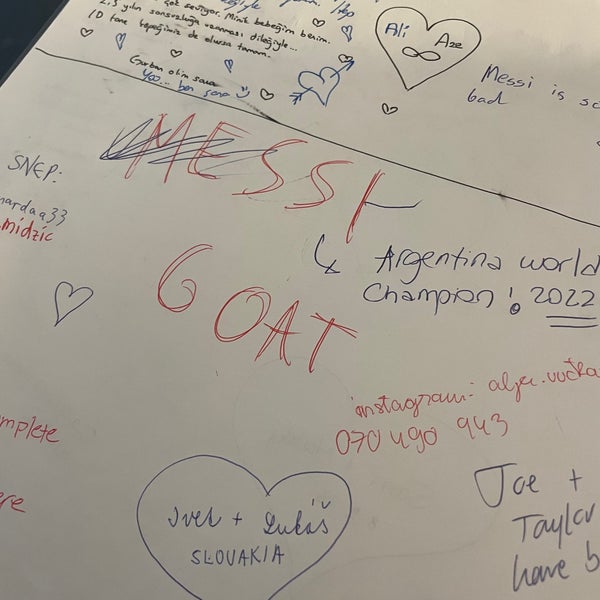 çok seviyor. Minik bebeğim benim.
2,5 yılın sonsuzluğa uzanması dileğiyle...
10 tane köpeğimiz de olursa tamam.
Kurban olim sana
Yoo... ben sana
Ali
Aze
Messi is so
bad
MESSI
SNEP:
midzic
Argentina world
Champion! 2022
GOAT
instagram:
070 490 943
mplete
ere
Ivet + Lukáš
SLOVAKIA
Joe +
Taylor
have b